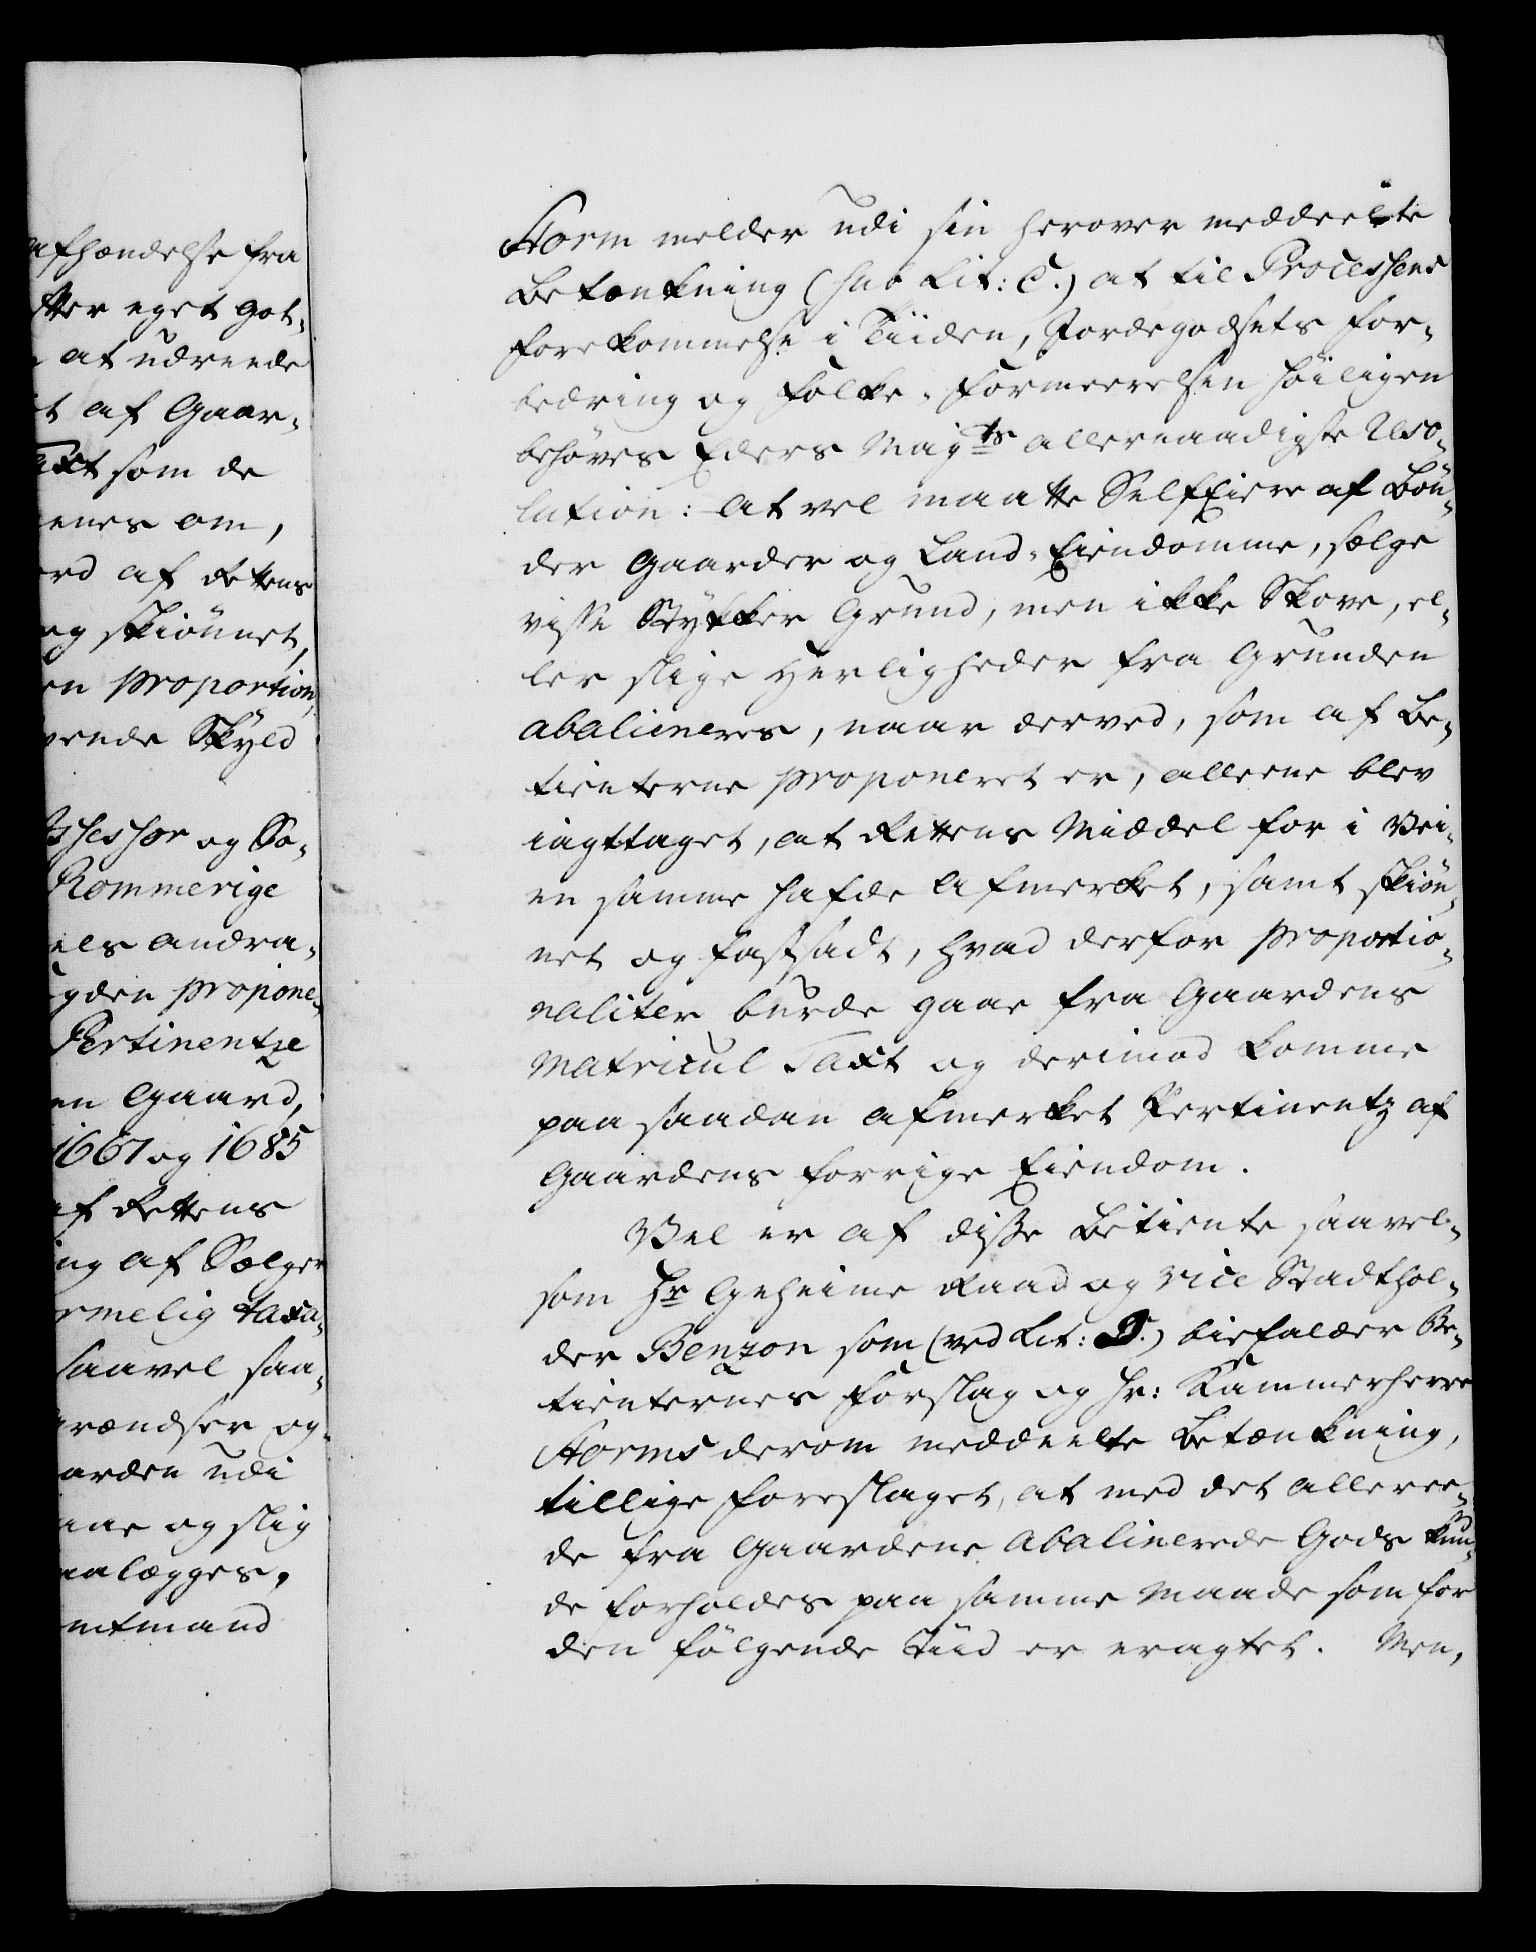 afhændelse fra
tter eget got-
at udreede
t af Gaar-
axt som de
enes om,
rd af Rettens
og skiønnet,
en proportion,
vende Skyld
ssessor og So-
Rommerige
els andra-
gden propone-
Pertinentze
en Gaard,
1667 og 1685
af Rettens
ng af Sælger
rmelig taxa-
saavel saa-
rændser og
arden udi
aae og slig
aalægges,
mtmand
Storm melder udi sin herover meddeelte
Betænkning (sub Lit: C.) at til Processens
forekommelse i Tiiden, Jordegodsets for-
bedring og Folke-Formeerelsen høiligen
behøves Eders Mayts allernaadigste Reso-
lution: at vel maatte SelfEiere af Bøn-
der Gaarder og Land-Eiendomme, sælge
visse Stykker Grund, men ikke Skove, el-
ler slige Herligheder fra Grunden
abalieneres, naar derved, som af Be-
tienterne proponeret er, alleene blev
iagttaget, at Rettens Middel for i Vei-
en samme hafde Afmerket, samt skiøn-
net og fastsadt, hvad derfor proportio-
naliter burde gaae fra Gaardens
Matricul Taxt og derimod komme
paa saadan afmerket Pertinentz af
Gaardens forrige Eiendom.
Vel er af disse Betiente saavel-
som Hr Geheime Raad og Vice Stadthol-
der Benzon som (ved Lit: D.) biefalder Be-
tienternes Forslag og Hr: Kammerherre
Storms derom meddeelte Betænkning,
tillige foreslaget, at med det alleree-
de fra Gaardene abalienerede Gods kun-
de forholdes paa samme Maade som for
den følgende Tiid er eragtet. Men,